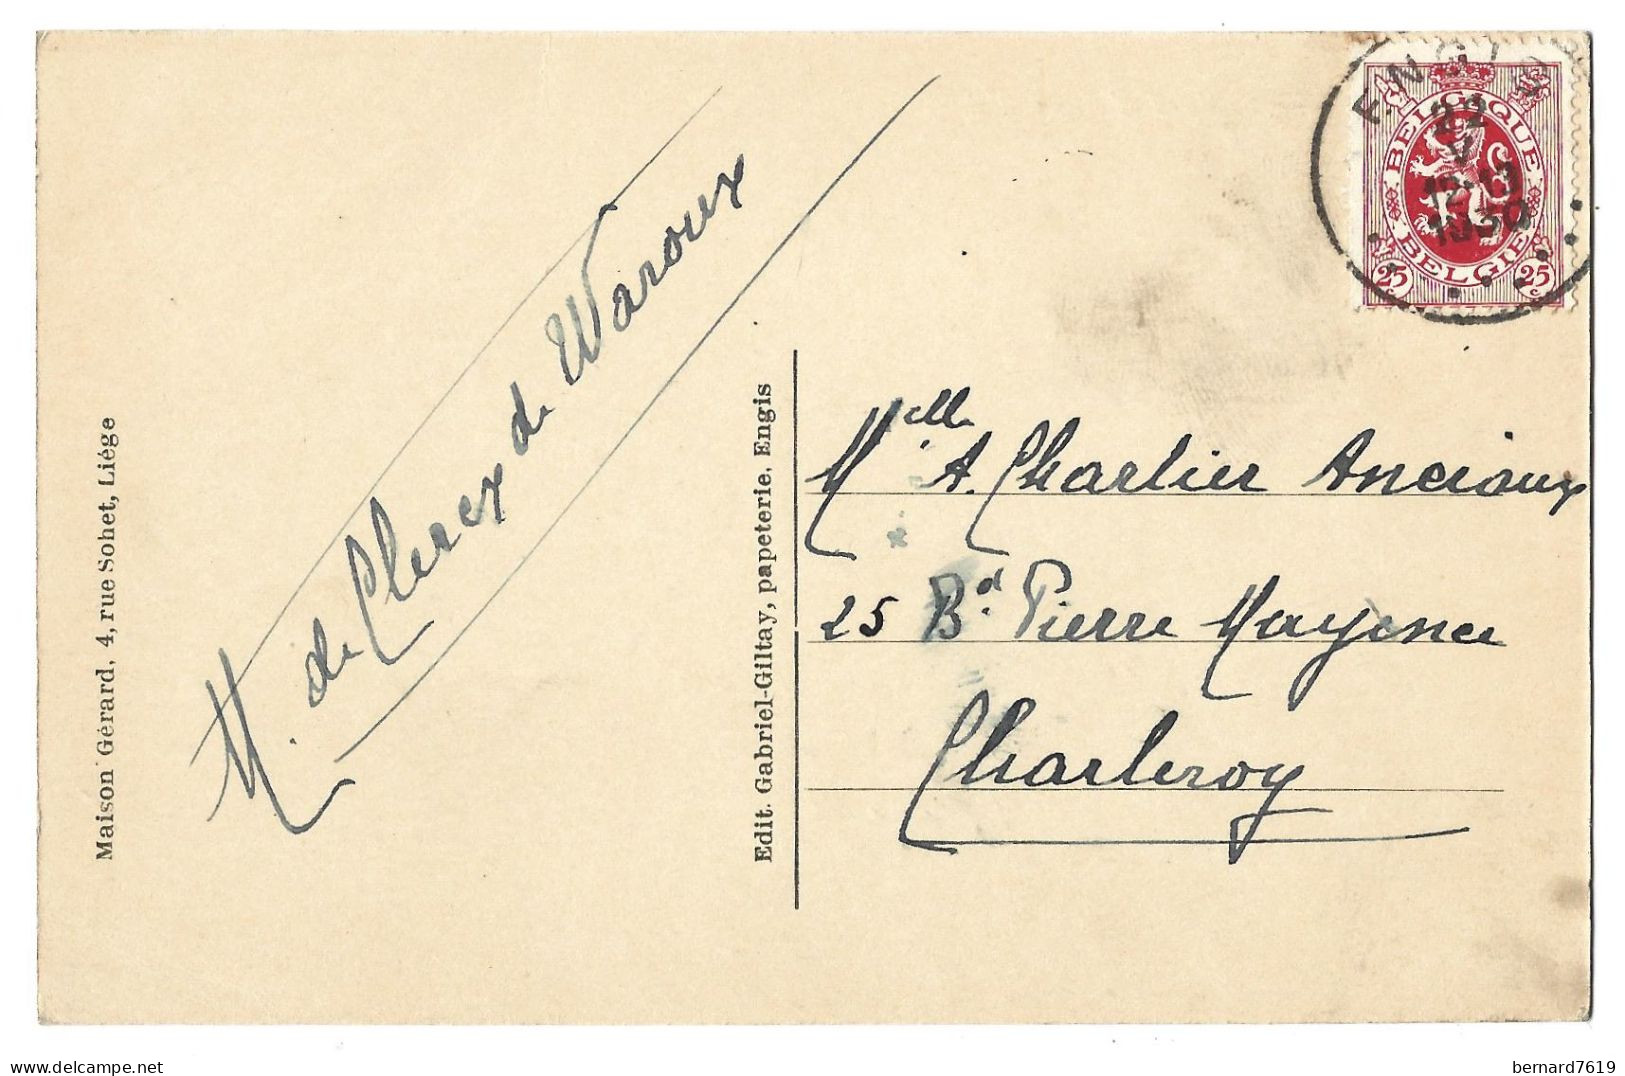 Maison Gérard, 4, rue Sohet, Liége
M. de Clerex de Waroux
Edit. Gabriel-Giltay, papeterie, Engis
ENGIS
22
V
12-13
1930
BELGIQUE
BELGIE
25c 25c
Melle A. Charlier Anciaux
25 Bd. Pierre Mayence
Charleroy
bernard7619